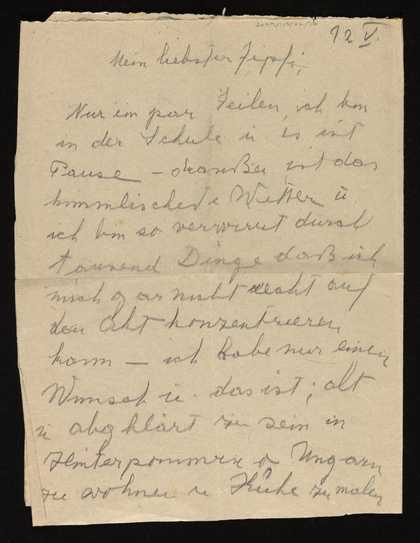 12 V.
Mein liebster Zipsi,
Nur im par Zeilen, ich bin
in der Schule u es ist
Pause – draußen ist das
himmlischeste Wetter u
ich bin so verwirrt durch
tausend Dinge daß ich
mich gar nicht recht auf
den Akt konzentrieren
kann – ich habe nur einen
Wunsch u. das ist; alt
u abgklärt zu sein in
Hinterpommern o Ungarn
zu wohnen u Kühe zu malen